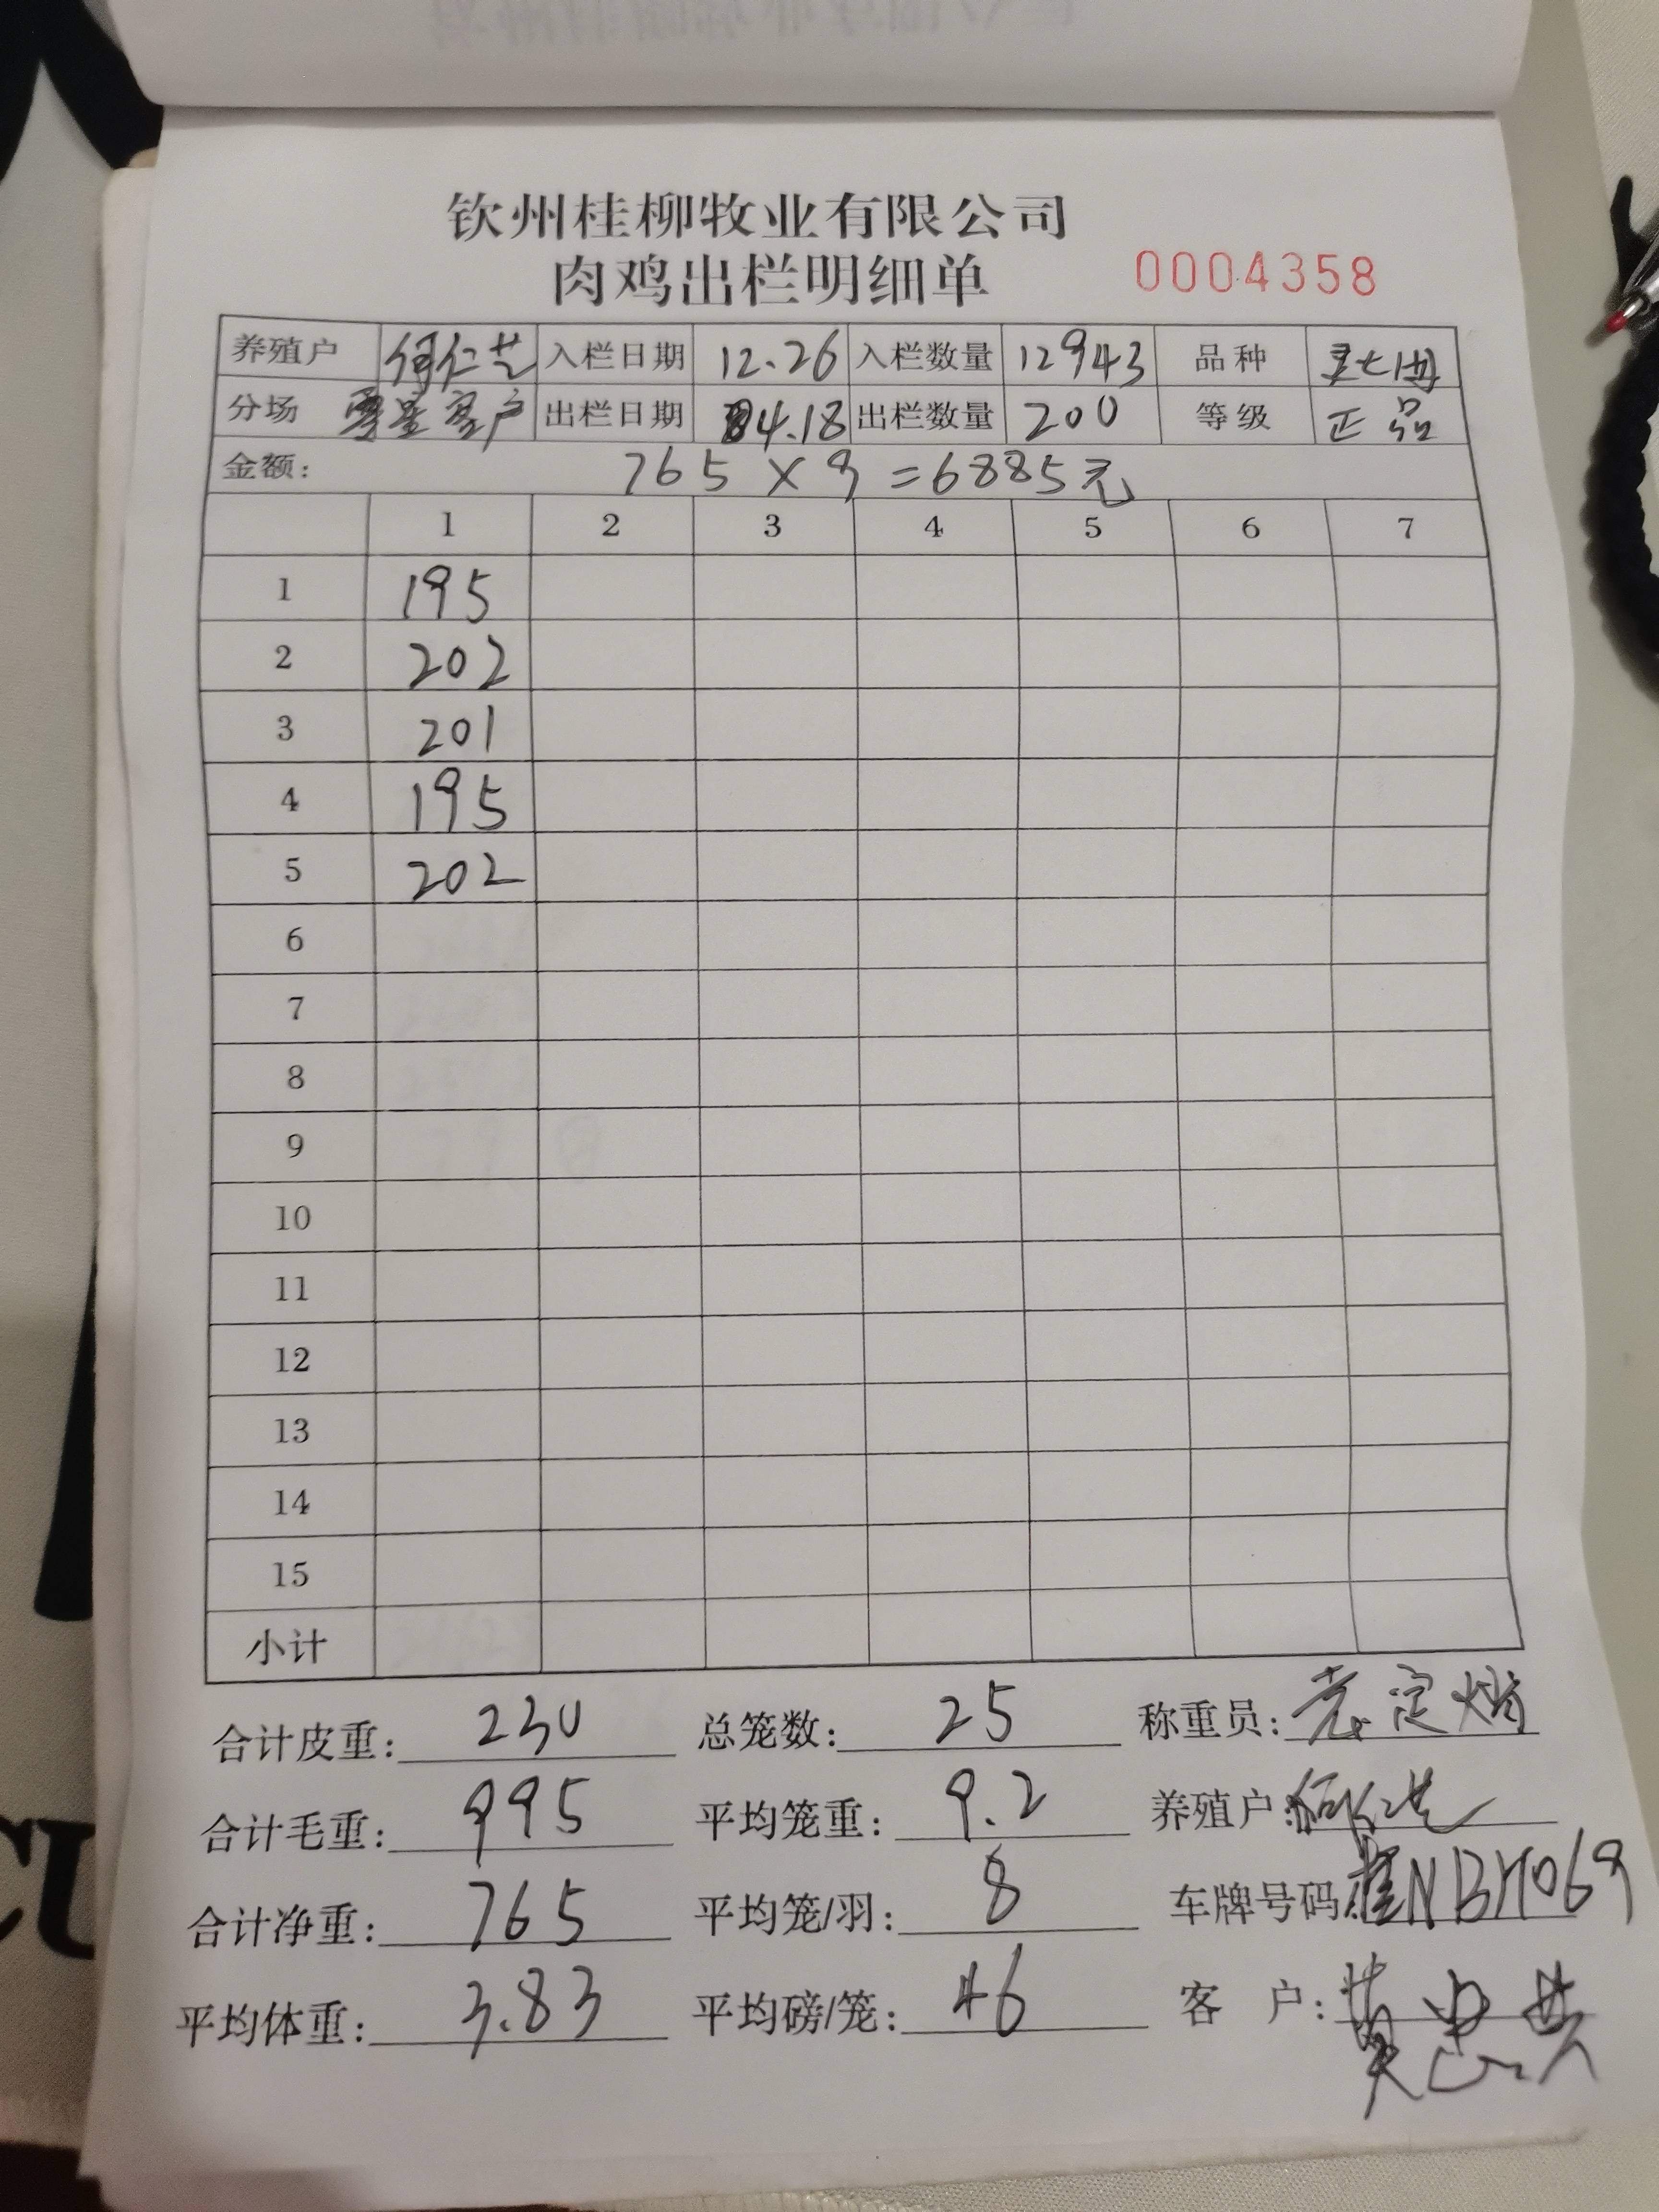 钦州桂柳牧业有限公司
肉鸡出栏明细单 0004358
养殖户 何仁芝 入栏日期 12.26 入栏数量 12943 品种
分场 零星客户 出栏日期 4.18 出栏数量 200 等级 正品
金额: 765×9=6885元
1 2 3 4 5 6 7
1 195
2 202
3 201
4 195
5 202
6
7
8
9
10
11
12
13
14
15
小计
合计皮重: 230 总笼数: 25 称重员:
合计毛重: 995 平均笼重: 9.2 养殖户:
合计净重: 765 平均笼/羽: 8 车牌号码:
平均体重: 3.83 平均磅/笼: 46 客 户:
CU